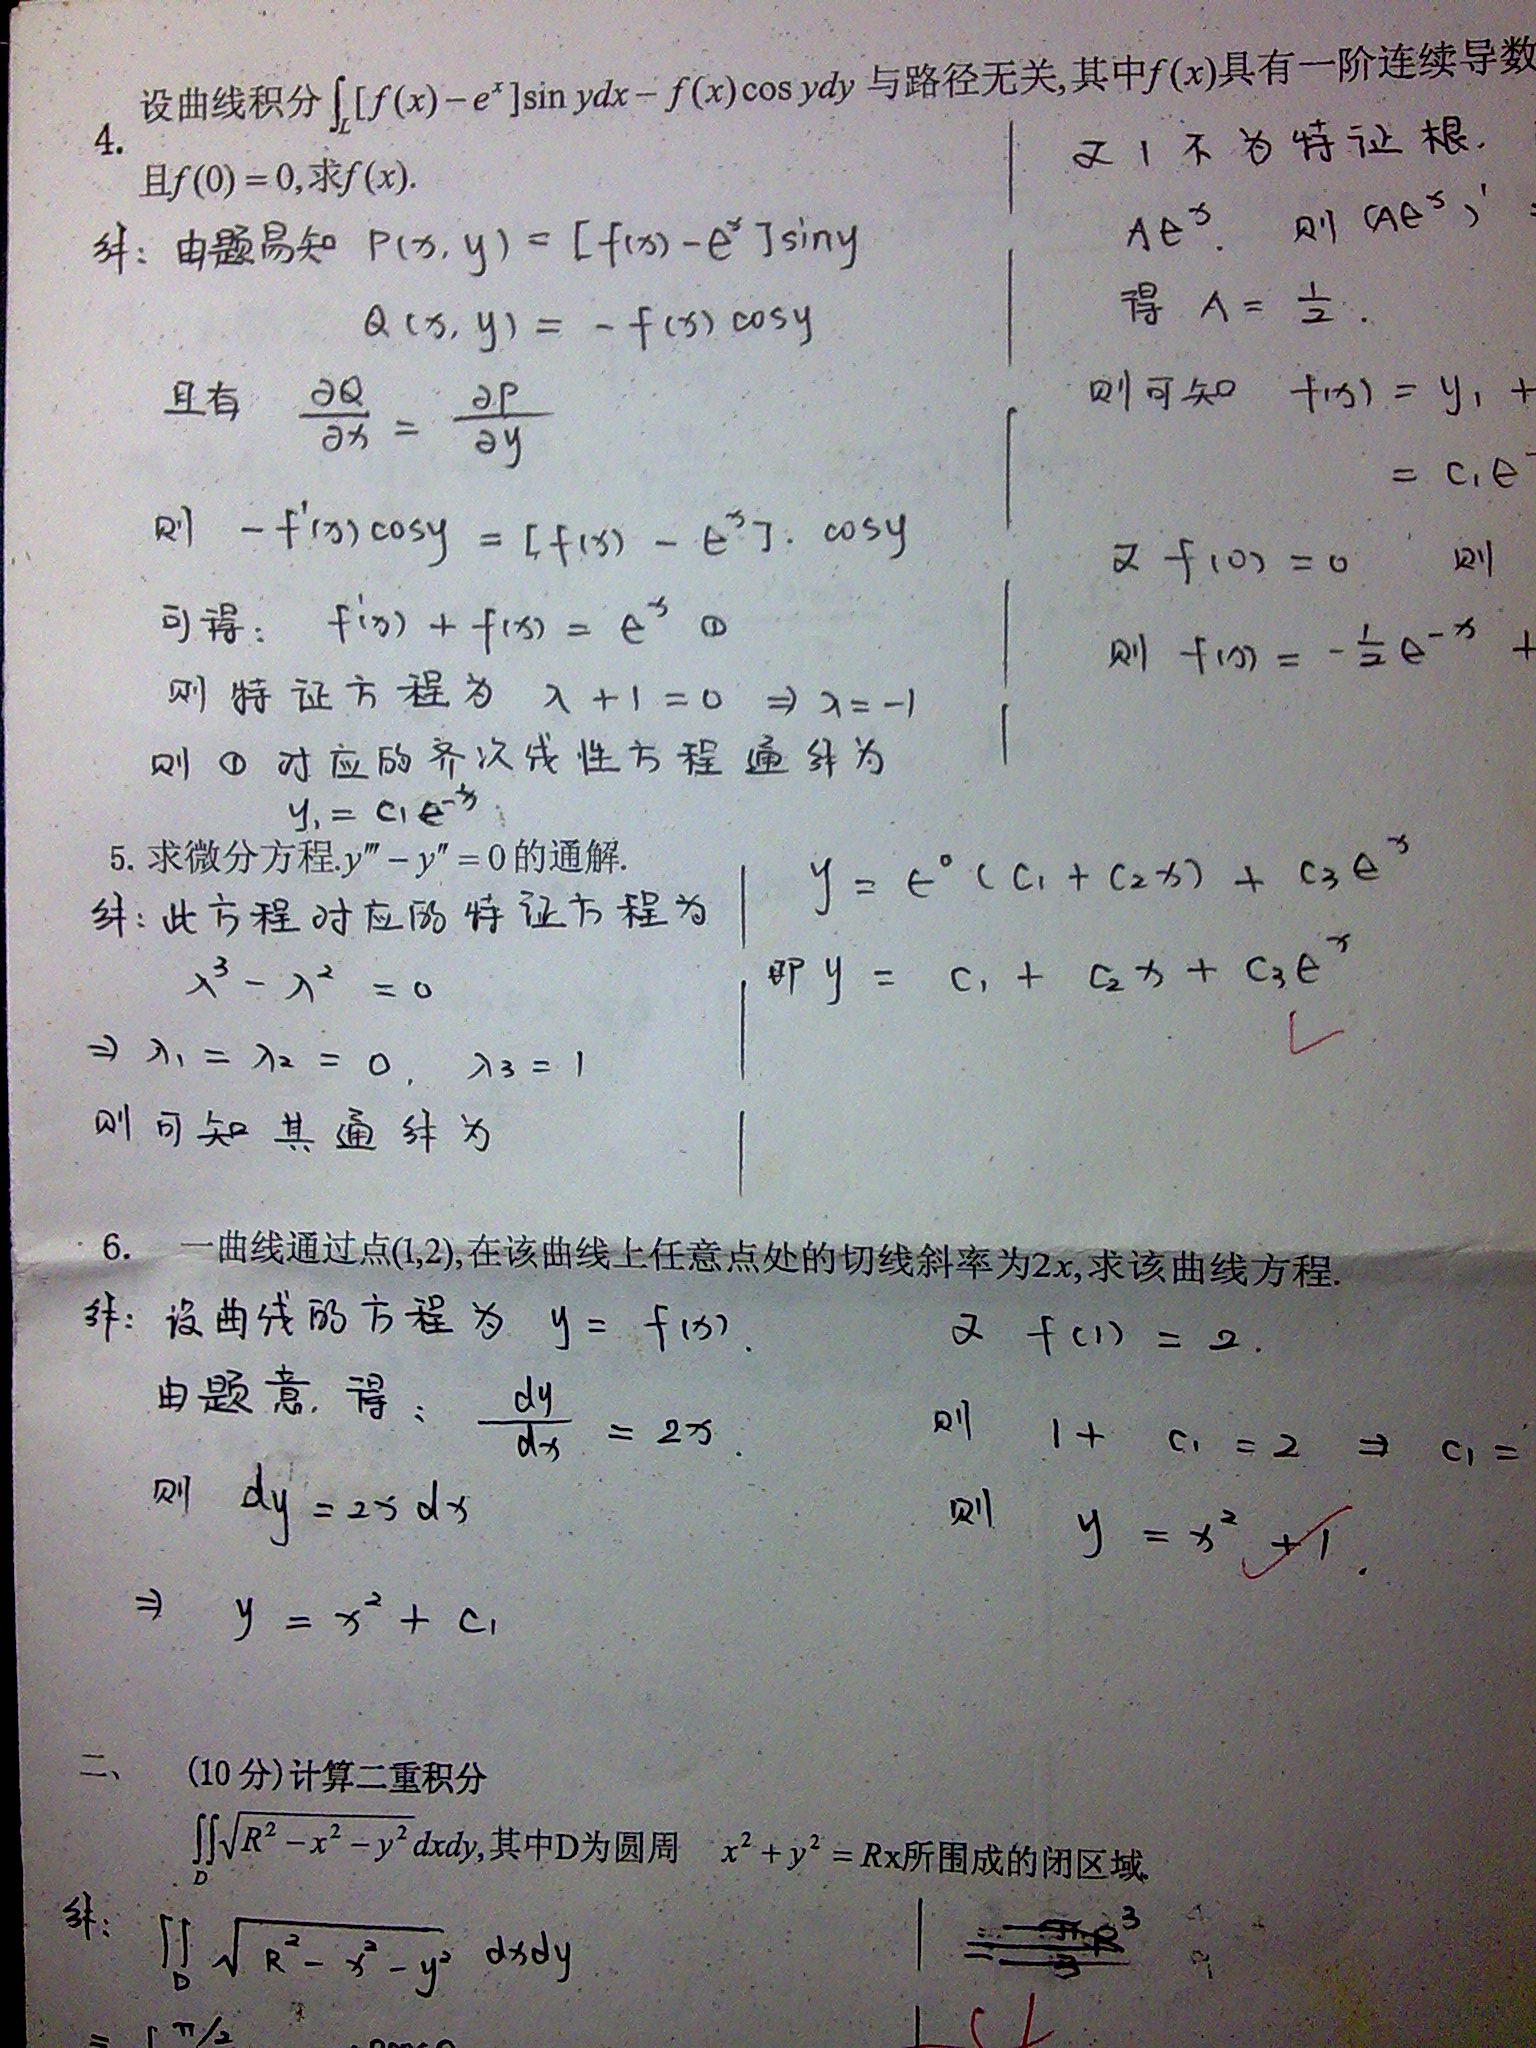 设曲线积分∫_L[f(x)-e^x]sin ydx-f(x)cos ydy 与路径无关,其中f(x)具有一阶连续导数
4.
且f(0)=0,求f(x).
解: 由题易知 P(x,y)=[f(x)-e^x]siny
Q(x,y)=-f(x)cosy
且有 ∂Q/∂x = ∂P/∂y
则 -f'(x)cosy=[f(x)-e^x]·cosy
可得: f'(x)+f(x)=e^x ①
则特证方程为 λ+1=0 ⇒ λ=-1
则①对应的齐次线性方程通解为
y₁=c₁e^-x.
又 1 不为特证根.
Ae^x. 则 (Ae^x)' =
得 A=1/2.
则可知 f(x)=y₁+
=c₁e^-
又 f(0)=0 则
则 f(x)=-1/2 e^-x +
5. 求微分方程.y'''-y''=0的通解.
解: 此方程对应的特证方程为
λ³-λ²=0
⇒ λ₁=λ₂=0, λ₃=1
则可知其通解为
y=e⁰(c₁+c₂x)+c₃e^x
即 y=c₁+c₂x+c₃e^x
6. 一曲线通过点(1,2),在该曲线上任意点处的切线斜率为2x,求该曲线方程.
解: 设曲线的方程为 y=f(x).
由题意,得: dy/dx=2x.
则 dy=2xdx
⇒ y=x²+c₁
又 f(1)=2.
则 1+c₁=2 ⇒ c₁=
则 y=x²+1.
二、 (10分)计算二重积分
∬_D√(R²-x²-y²)dxdy,其中D为圆周 x²+y²=Rx所围成的闭区域.
解: ∬_D √(R²-x²-y²) dxdy
= ∫^π/2